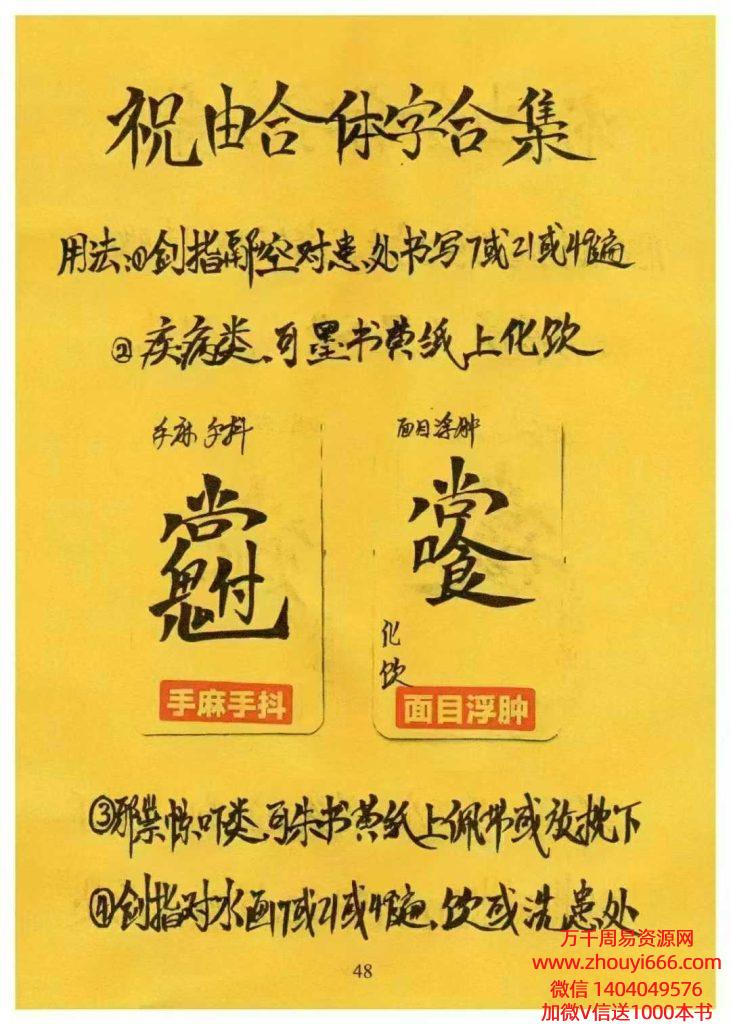 祝由合体字合集
用法:①剑指凌空对患处书写7或21或49遍
②疾病类、可墨书黄纸上化饮
手麻手抖
面目浮肿
化饮
手麻手抖
面目浮肿
③邪祟惊吓类、可朱书黄纸上佩带或放枕下
④剑指对水画7或21或49遍、饮或洗患处
48
万千周易资源网
www.zhouyi666.com
微信 1404049576
加微V信送1000本书